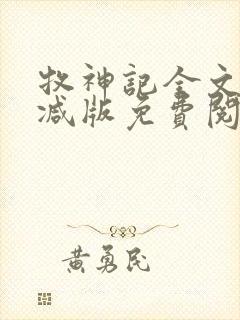 牧神記全文
减版免費閱
黃勇民